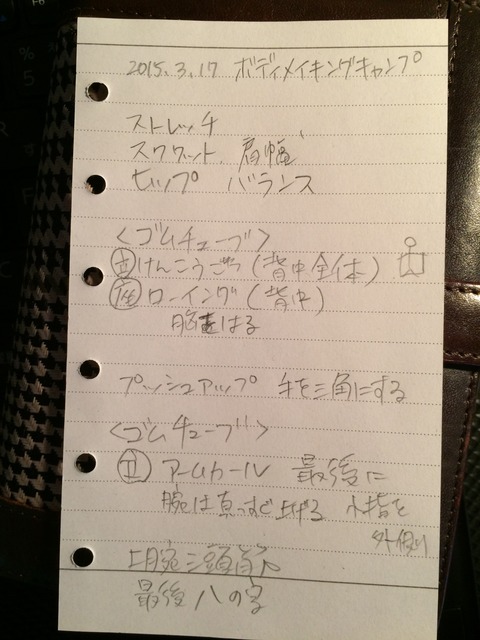 2015.3.17 ボディメイキングキャンプ
ストレッチ
スクワット 肩幅
ヒップ バランス
<ゴムチューブ>
立 けんこうこつ (背中全体)
座 ローイング (背中)
はる
プッシュアップ 手を三角にする
<ゴムチューブ>
立 アームカール 最後に
腕は真っすぐ上げる 小指を
外側
上腕二頭筋
最後 八の字